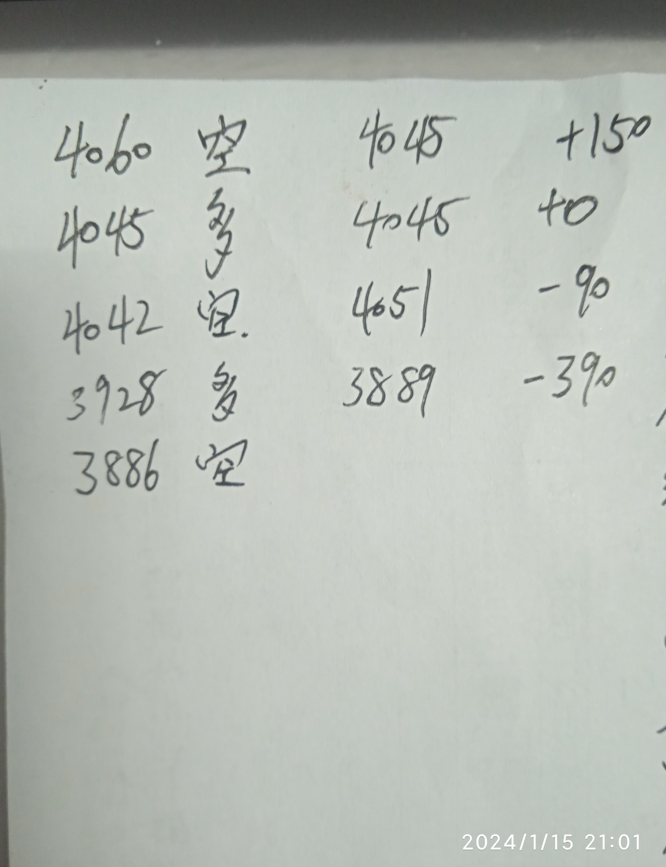 4060 空 4045 +150
4045 多 4045 +0
4042 空. 4051 -90
3928 多 3889 -390
3886 空
2024/1/15 21:01